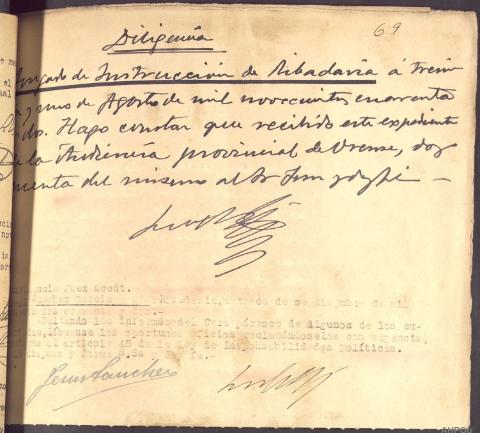 69
Diligencia
Juzgado de Instrucción de Ribadavia á trein
y uno de Agosto de mil novecientos cuarenta
dos. Hago constar que recibido este expediente
de la Audiencia provincial de Orense, doy
cuenta del mismo al Sr Juez doy fé —
Juez Accót.
Sanchez Garcia Ribadavia, a trece de septiembre de mil
cuarenta y dos.
Faltando los informes del Cura párroco de algunos de los en-
líbrense los oportunos oficios reclamándoselos con urgencia,
el artículo 48 de la Ley de Responsabilidades Políticas.
y firma Sª Sª doy fé.
Jesus Sanchez